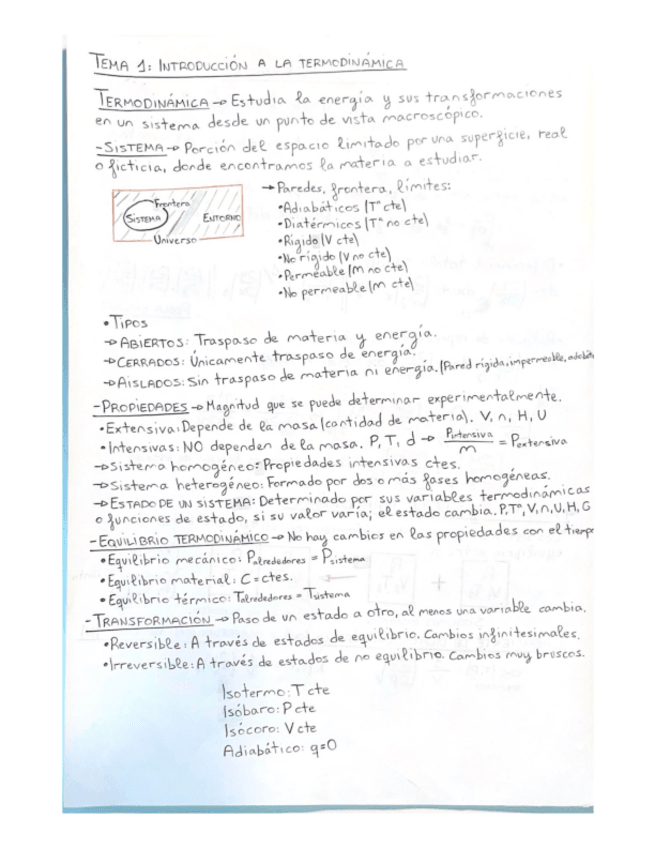 TEMA 1: INTRODUCCIÓN A LA TERMODINÁMICA
TERMODINÁMICA → Estudia la energía y sus transformaciones
en un sistema desde un punto de vista macroscópico.
- SISTEMA → Porción del espacio limitado por una superficie, real
o ficticia, donde encontramos la materia a estudiar.
Frontera
SISTEMA
ENTORNO
Universo
→ Paredes, frontera, límites:
• Adiabáticos (Tª cte)
• Diatérmicos (Tª no cte)
• Rígido (V cte)
• No rígido (V no cte)
• Permeable (m no cte)
• No permeable (m cte)
• TIPOS
→ ABIERTOS: Traspaso de materia y energía.
→ CERRADOS: Únicamente traspaso de energía.
→ AISLADOS: Sin traspaso de materia ni energía. (Pared rígida, impermeable,
- PROPIEDADES → Magnitud que se puede determinar experimentalmente.
• Extensiva: Depende de la masa (cantidad de materia). V, n, H, U
• Intensivas: NO dependen de la masa. P, T, d → Pintensiva / m = Pextensiva
→ Sistema homogéneo: Propiedades intensivas ctes.
→ Sistema heterogéneo: Formado por dos o más fases homogéneas.
→ ESTADO DE UN SISTEMA: Determinado por sus variables termodinámicas
o funciones de estado, si su valor varía; el estado cambia. P, Tª, V, n, U, H, G
- EQUILIBRIO TERMODINÁMICO → No hay cambios en las propiedades con el tiempo
• Equilibrio mecánico: Palrededores = Psistema
• Equilibrio material: C = ctes.
• Equilibrio térmico: Talrededores = Tsistema
- TRANSFORMACIÓN → Paso de un estado a otro, al menos una variable cambia.
• Reversible: A través de estados de equilibrio. Cambios infinitesimales.
• Irreversible: A través de estados de no equilibrio. Cambios muy bruscos.
Isotermo: T cte
Isóbaro: P cte
Isócoro: V cte
Adiabático: q=0